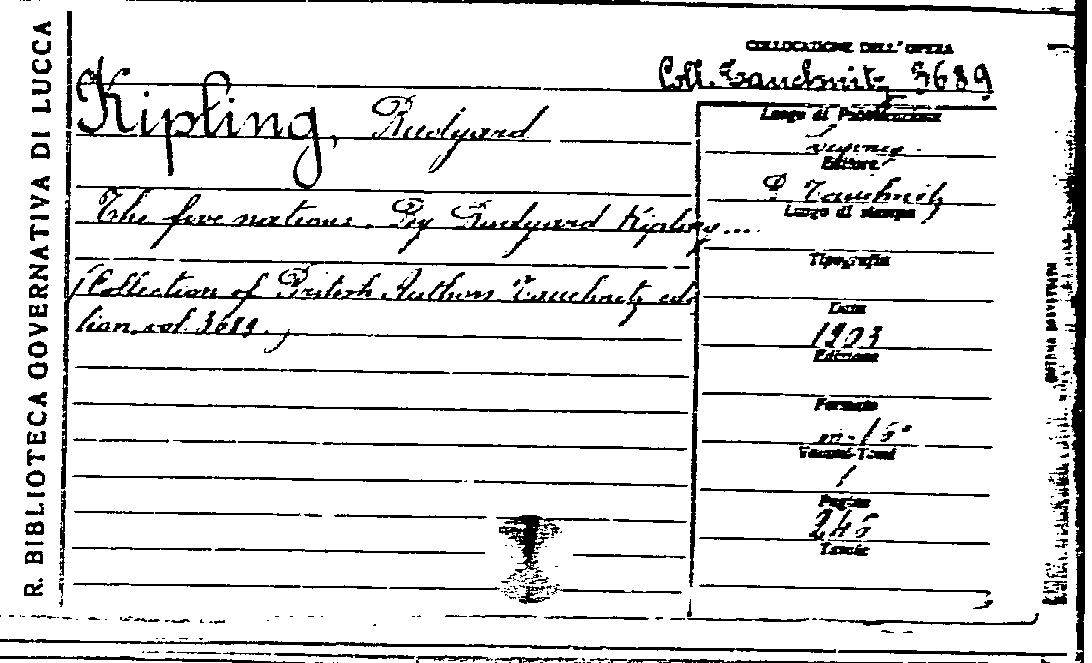 R. BIBLIOTECA GOVERNATIVA DI LUCCA
COLLOCAZIONE DELL'OPERA
Coll. Tauchnitz 3689
Kipling, Rudyard
The five nations. By Rudyard Kipling...
(Collection of British Authors Tauchnitz edi
tion, vol. 3689.)
Luogo di Pubblicazione
Editore
Tauchnitz
Luogo di stampa
Tipografia
Data
1903
Edizione
Formato
in-16°
Volumi-Tomi
1
Pagine
Tavole